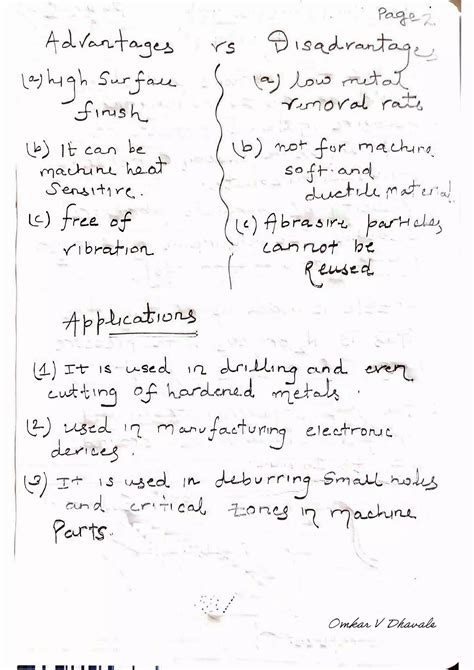 Page 2
Advantages vs Disadvantages
(a) high Surface
finish
(b) It can be
machine heat
Sensitive.
(c) free of
vibration
(a) low metal
removal rate
(b) not for machine
soft and
ductile material
(c) Abrasive particles
cannot be
Reused
Applications
(1) It is used in drilling and even
cutting of hardened metals.
(2) used in manufacturing electronic
devices.
(3) It is used in deburring Small holes
and critical zones in machine
Parts.
Omkar V Dhavale